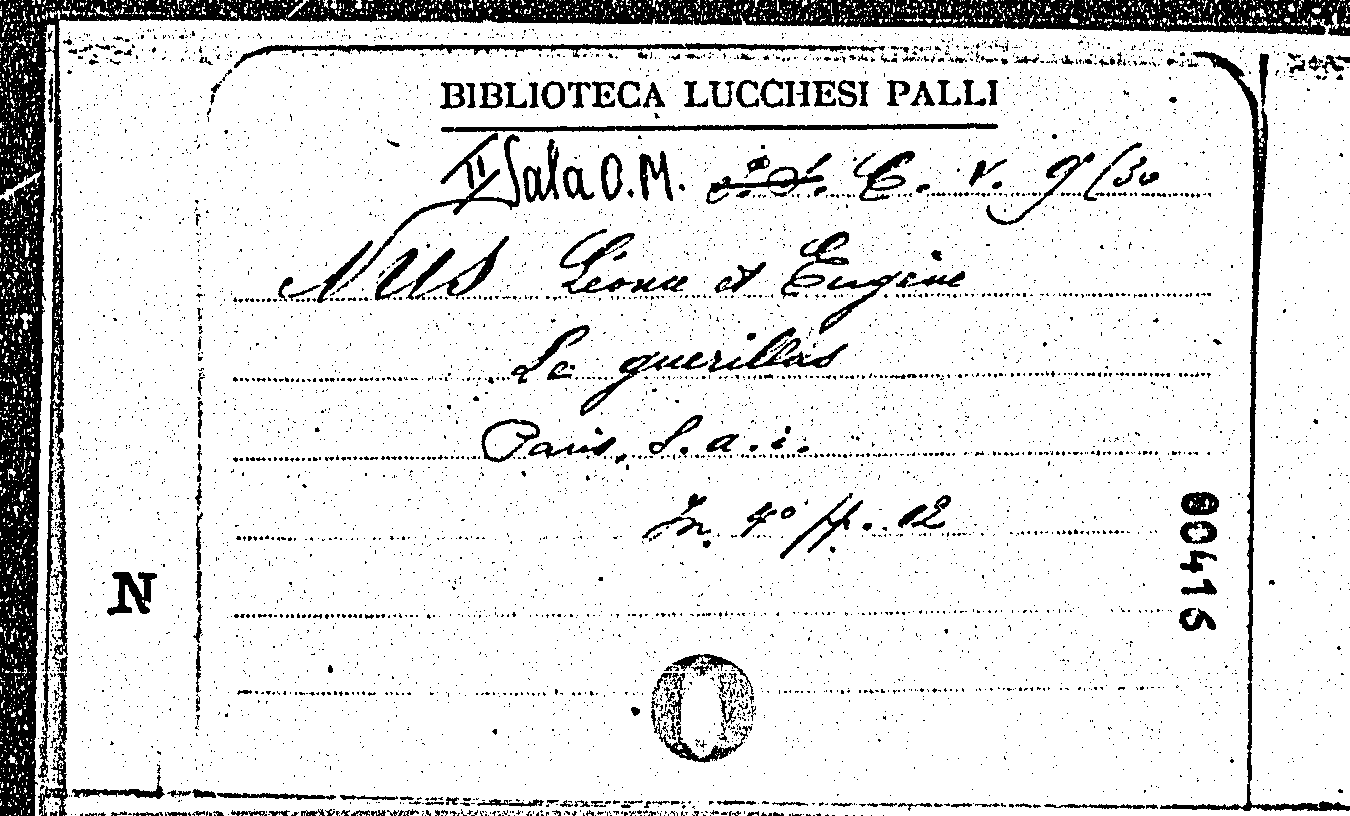 BIBLIOTECA LUCCHESI PALLI
II Sala O.M. C. V. 9 (30
NUS Léonce et Eugène
Le guerillas
Paris, S. a. i.
In 4° pp. 12
N
00416